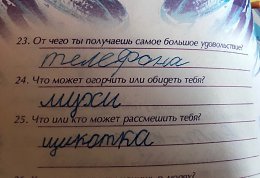 23. От чего ты получаешь самое большое удовольствие?
телефона
24. Что может огорчить или обидеть тебя?
мухи
25. Что или кто может рассмешить тебя?
щикотка